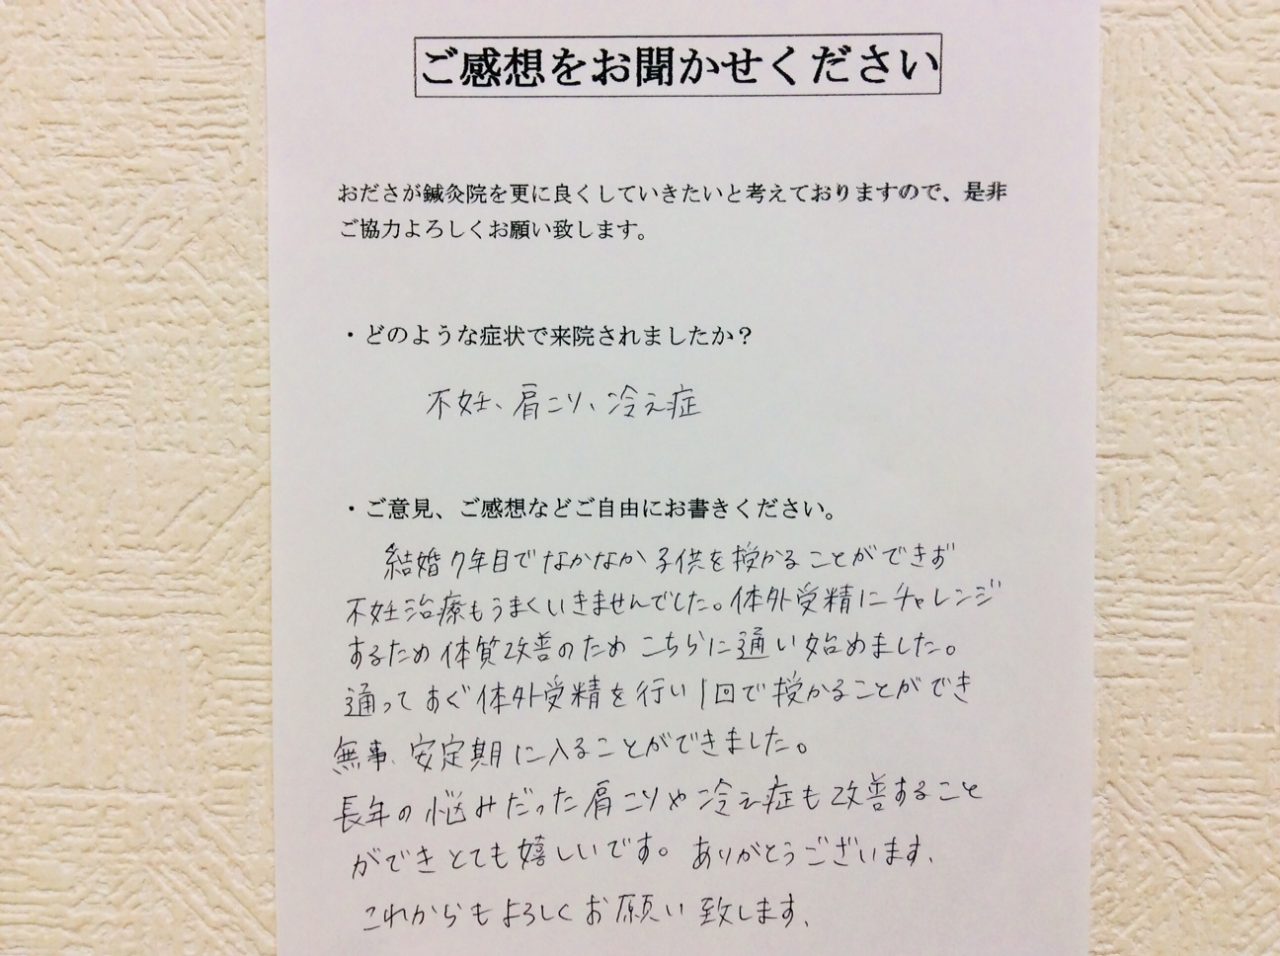 ご感想をお聞かせください
おださが鍼灸院を更に良くしていきたいと考えておりますので、是非
ご協力よろしくお願い致します。
・どのような症状で来院されましたか？
不妊、肩こり、冷え症
・ご意見、ご感想などご自由にお書きください。
結婚7年目でなかなか子供を授かることができず
不妊治療もうまくいきませんでした。体外受精にチャレンジ
するため体質改善のためこちらに通い始めました。
通ってすぐ体外受精を行い1回で授かることができ
無事、安定期に入ることができました。
長年の悩みだった肩こりや冷え症も改善すること
ができとても嬉しいです。ありがとうございます。
これからもよろしくお願い致します。